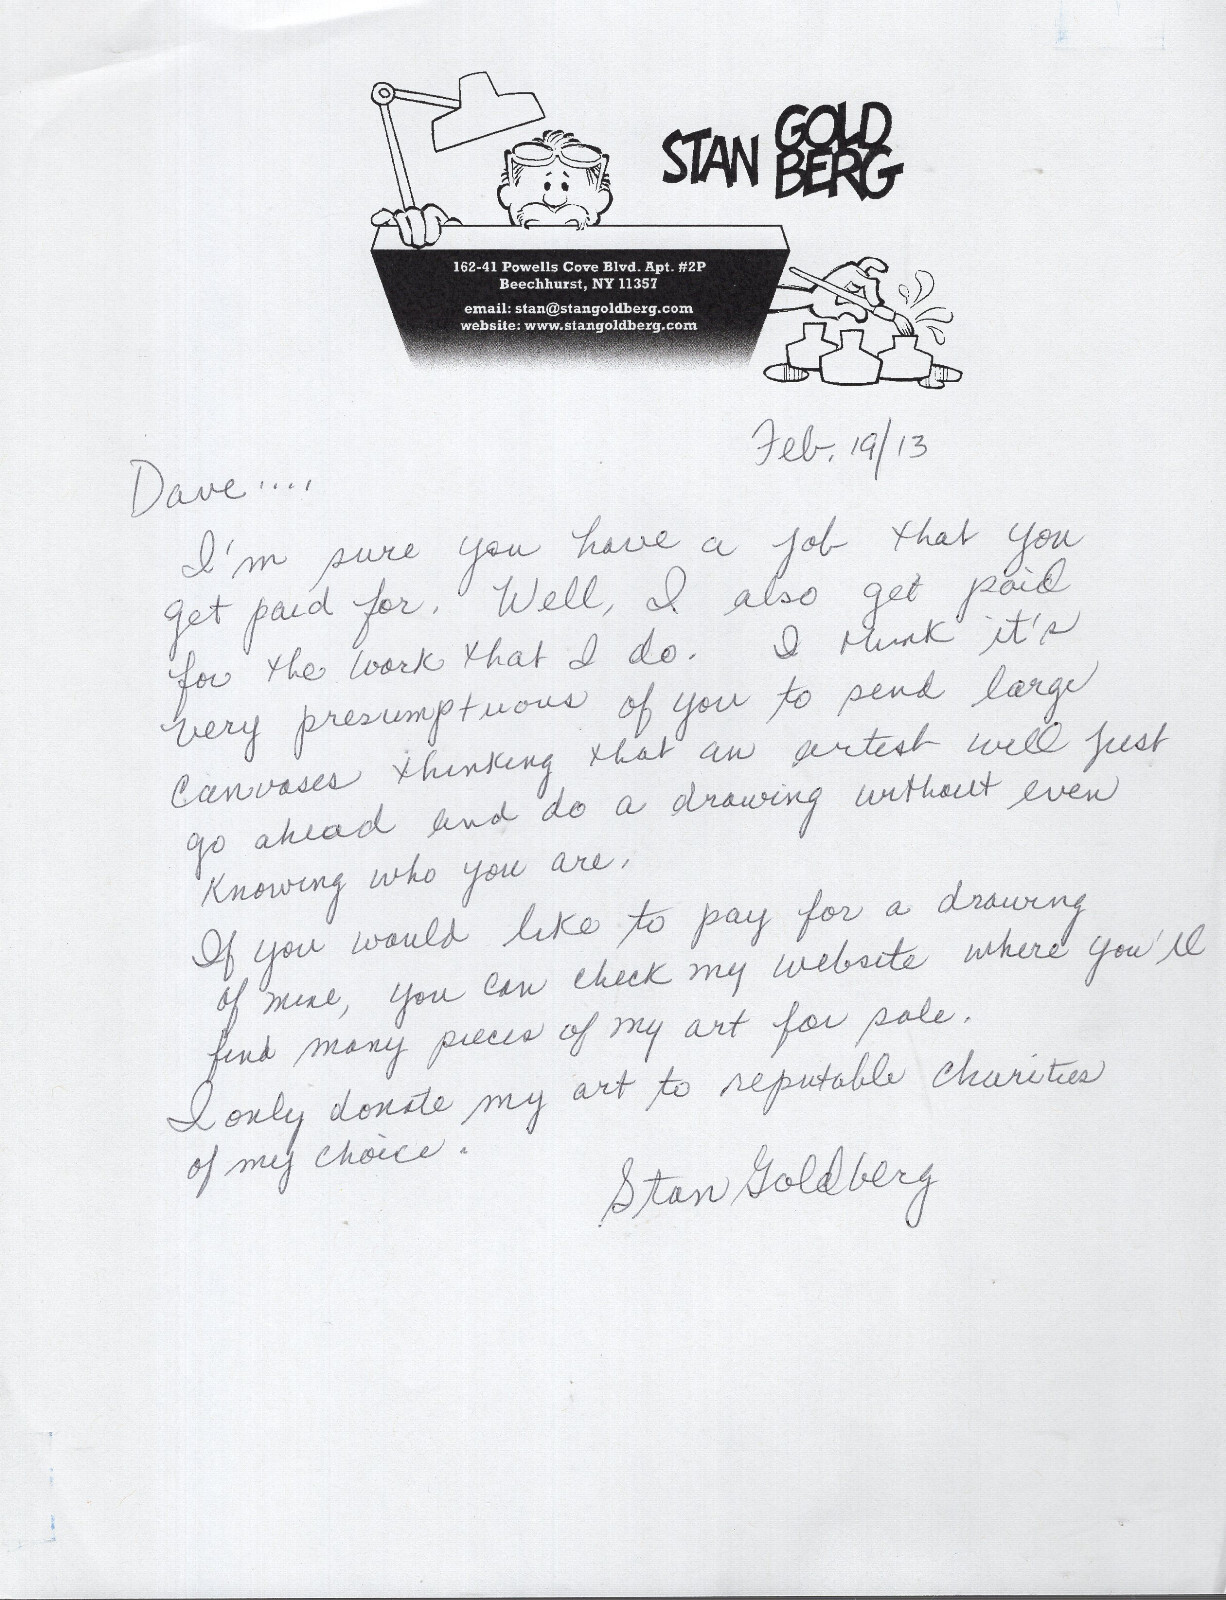 STAN GOLD
BERG
162-41 Powells Cove Blvd. Apt. #2P
Beechhurst, NY 11357
email: stan@stangoldberg.com
website: www.stangoldberg.com
Feb. 19/13
Dave....
I'm sure you have a job that you
get paid for. Well, I also get paid
for the work that I do. I think it's
very presumptuous of you to send large
canvases thinking that an artist will just
go ahead and do a drawing without even
knowing who you are.
If you would like to pay for a drawing
of mine, you can check my website where you'll
find many pieces of my art for sale.
I only donate my art to reputable charities
of my choice.
Stan Goldberg